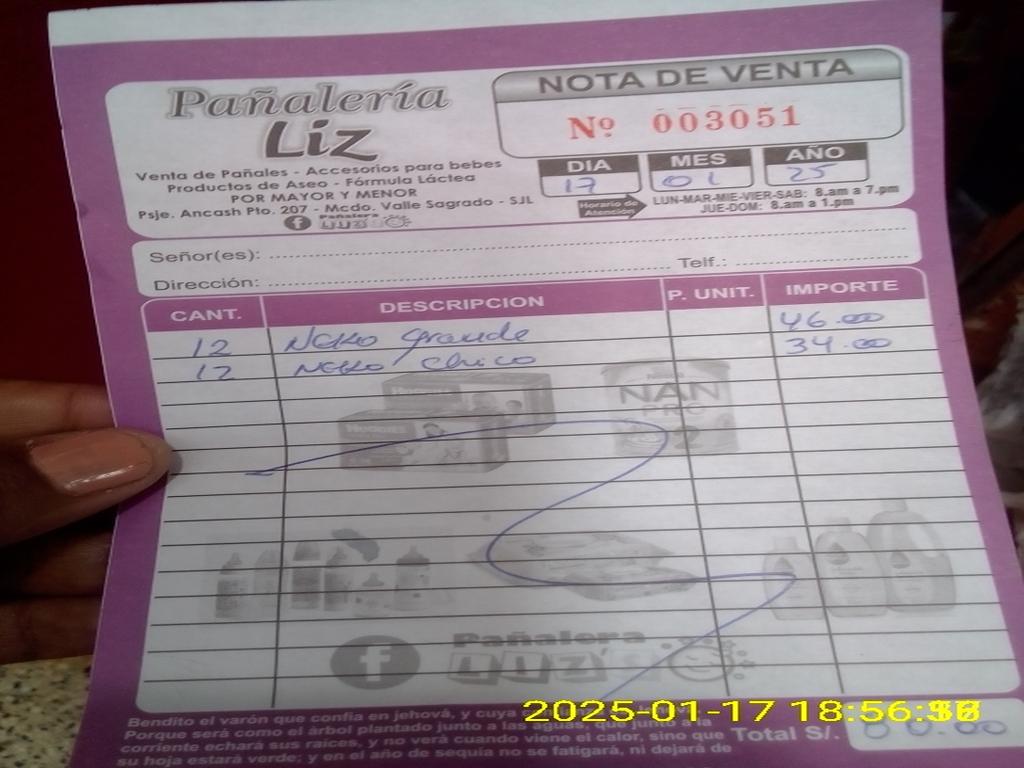 Pañalería
Liz
Venta de Pañales - Accesorios para bebes
Productos de Aseo - Fórmula Láctea
POR MAYOR Y MENOR
Psje. Ancash Pto. 207 - Mcdo. Valle Sagrado - SJL
f Pañalera
NOTA DE VENTA
Nº 003051
DIA MES AÑO
17 01 25
Horario de Atención LUN-MAR-MIE-VIER-SAB: 8.am a 7.pm
JUE-DOM: 8.am a 1.pm
Señor(es):
Dirección: Telf.:
CANT. DESCRIPCION P. UNIT. IMPORTE
12 Neko grande 46.00
12 Neko chico 34.00
NAN
PRO
2
f Pañalera
Bendito el varón que confia en jehová, y cuya
Porque será como el árbol plantado junto a las aguas, que junto a la
corriente echará sus raices, y no verá cuando viene el calor, sino que
su hoja estará verde; y en el año de sequía no se fatigará, ni dejará de
Total S/. 80.00
2025-01-17 18:56